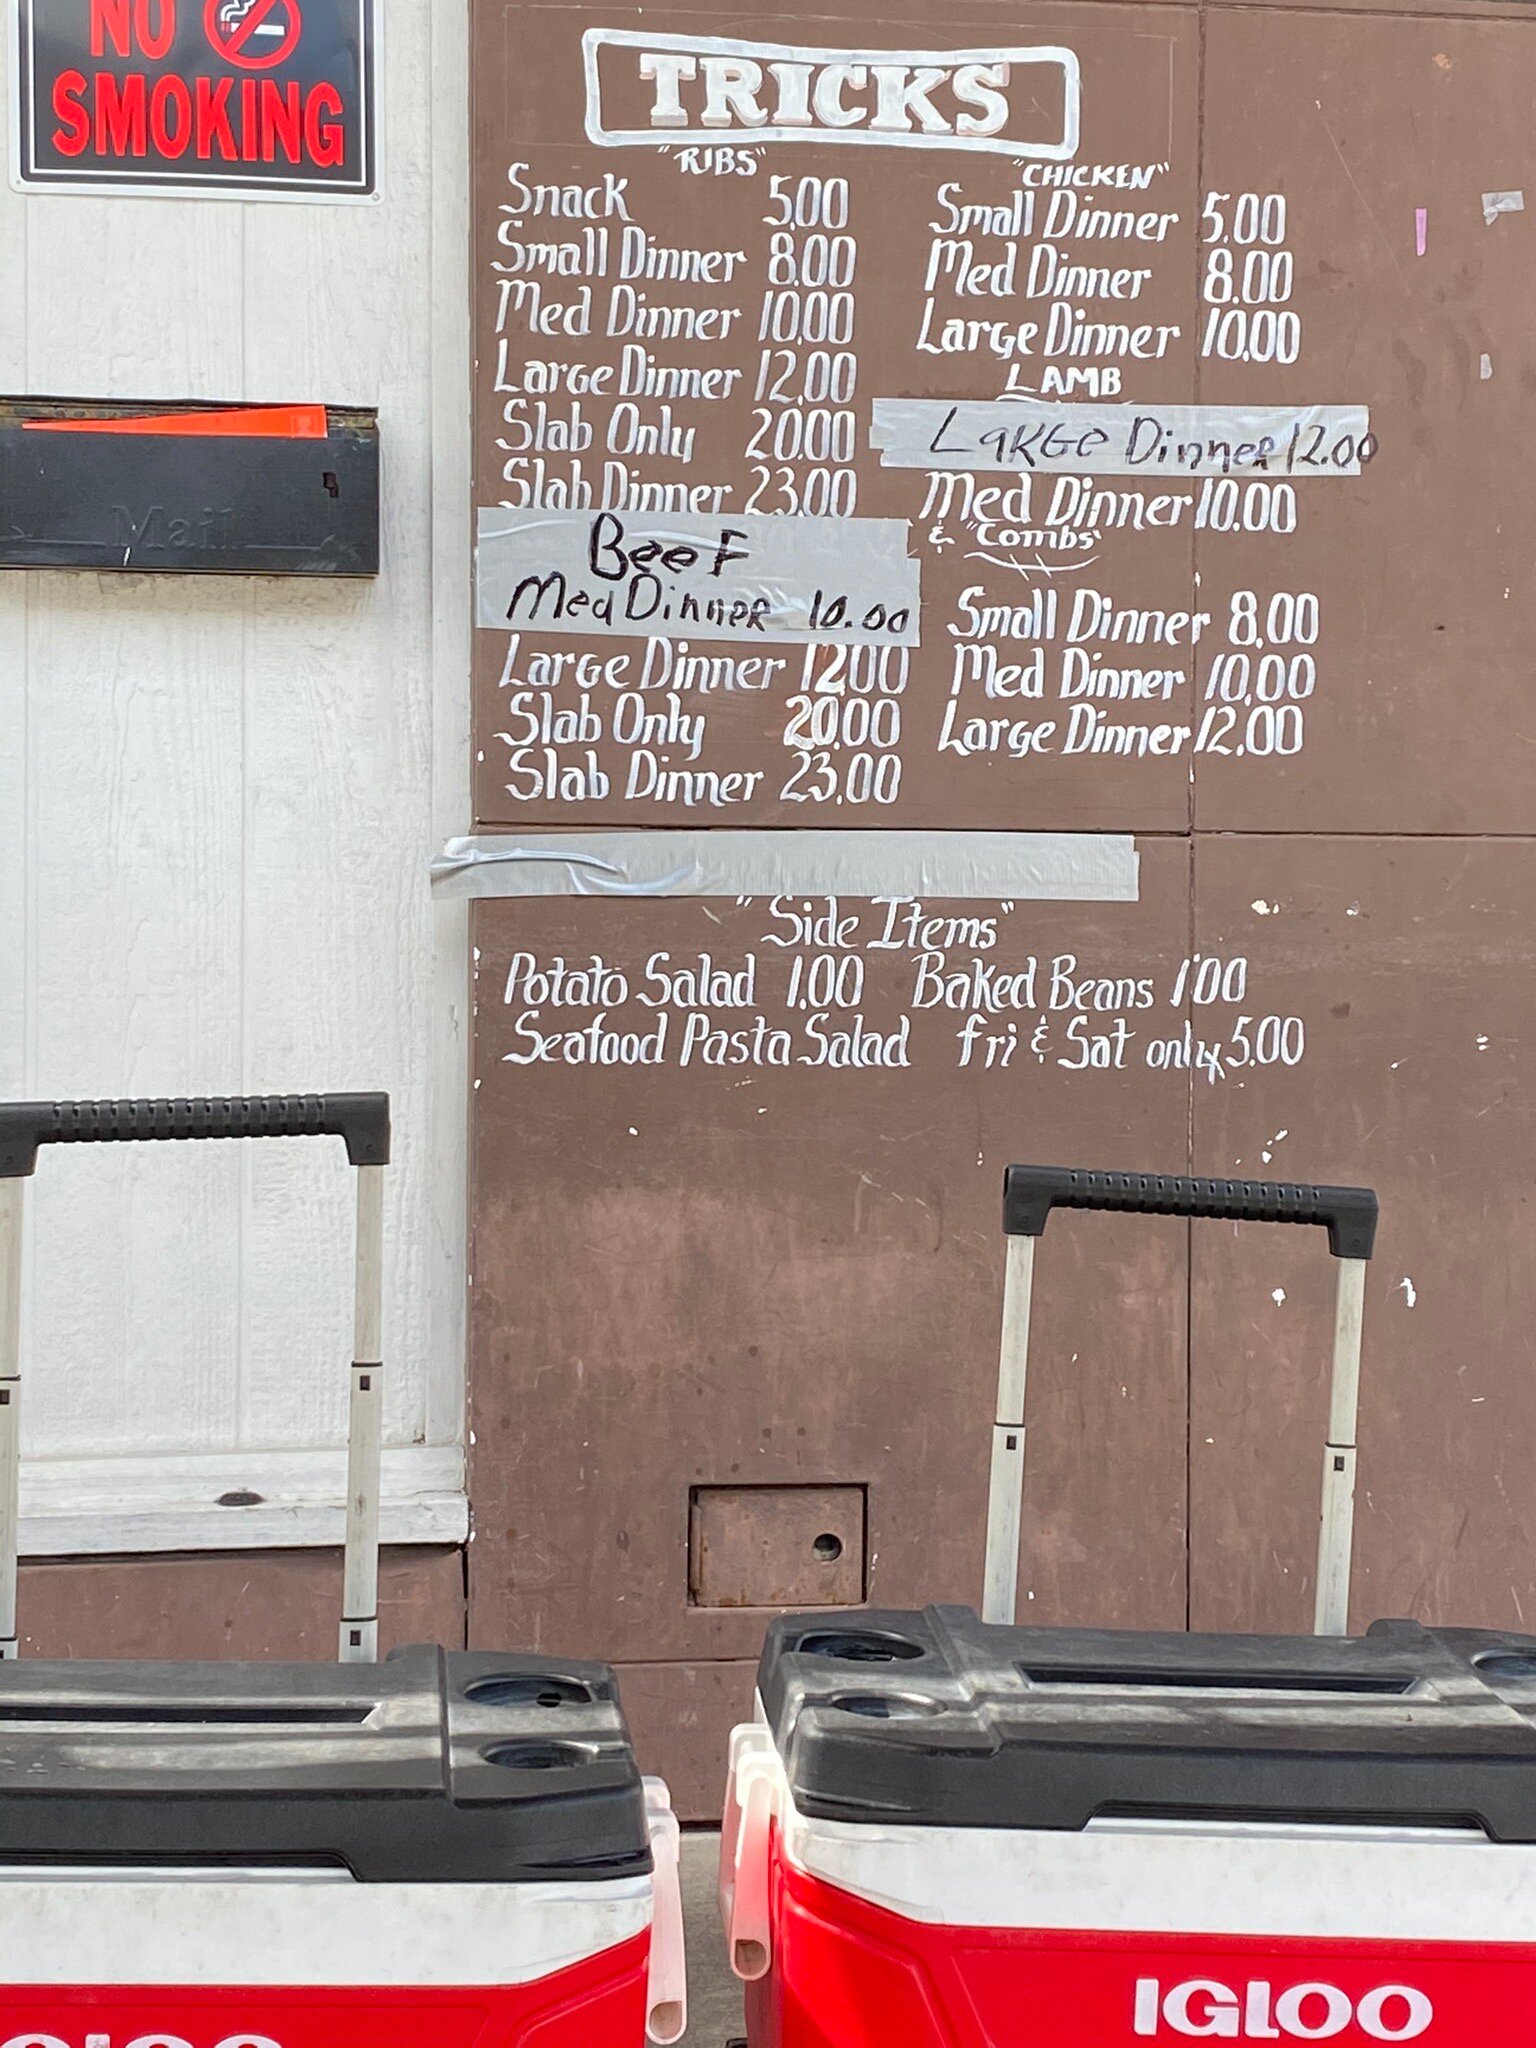 NO
SMOKING
Mail
TRICKS
"RIBS"
Snack 5.00
Small Dinner 8.00
Med Dinner 10.00
Large Dinner 12.00
Slab Only 20.00
Slab Dinner 23.00
Beef
Med Dinner 10.00
Large Dinner 12.00
Slab Only 20.00
Slab Dinner 23.00
"CHICKEN"
Small Dinner 5.00
Med Dinner 8.00
Large Dinner 10.00
LAMB
Large Dinner 12.00
Med Dinner 10.00
& "Combs"
Small Dinner 8.00
Med Dinner 10.00
Large Dinner 12.00
"Side Items"
Potato Salad 1.00 Baked Beans 1.00
Seafood Pasta Salad fri & Sat only 5.00
IGLOO